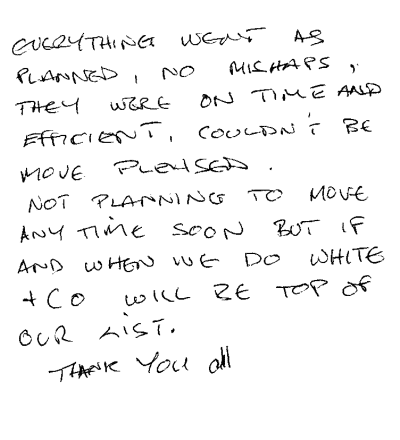 EVERYTHING WENT AS
PLANNED, NO MISHAPS,
THEY WERE ON TIME AND
EFFICIENT, COULDN'T BE
MOVE PLEASED.
NOT PLANNING TO MOVE
ANY TIME SOON BUT IF
AND WHEN WE DO WHITE
+ CO WILL BE TOP OF
OUR LIST.
THANK YOU all